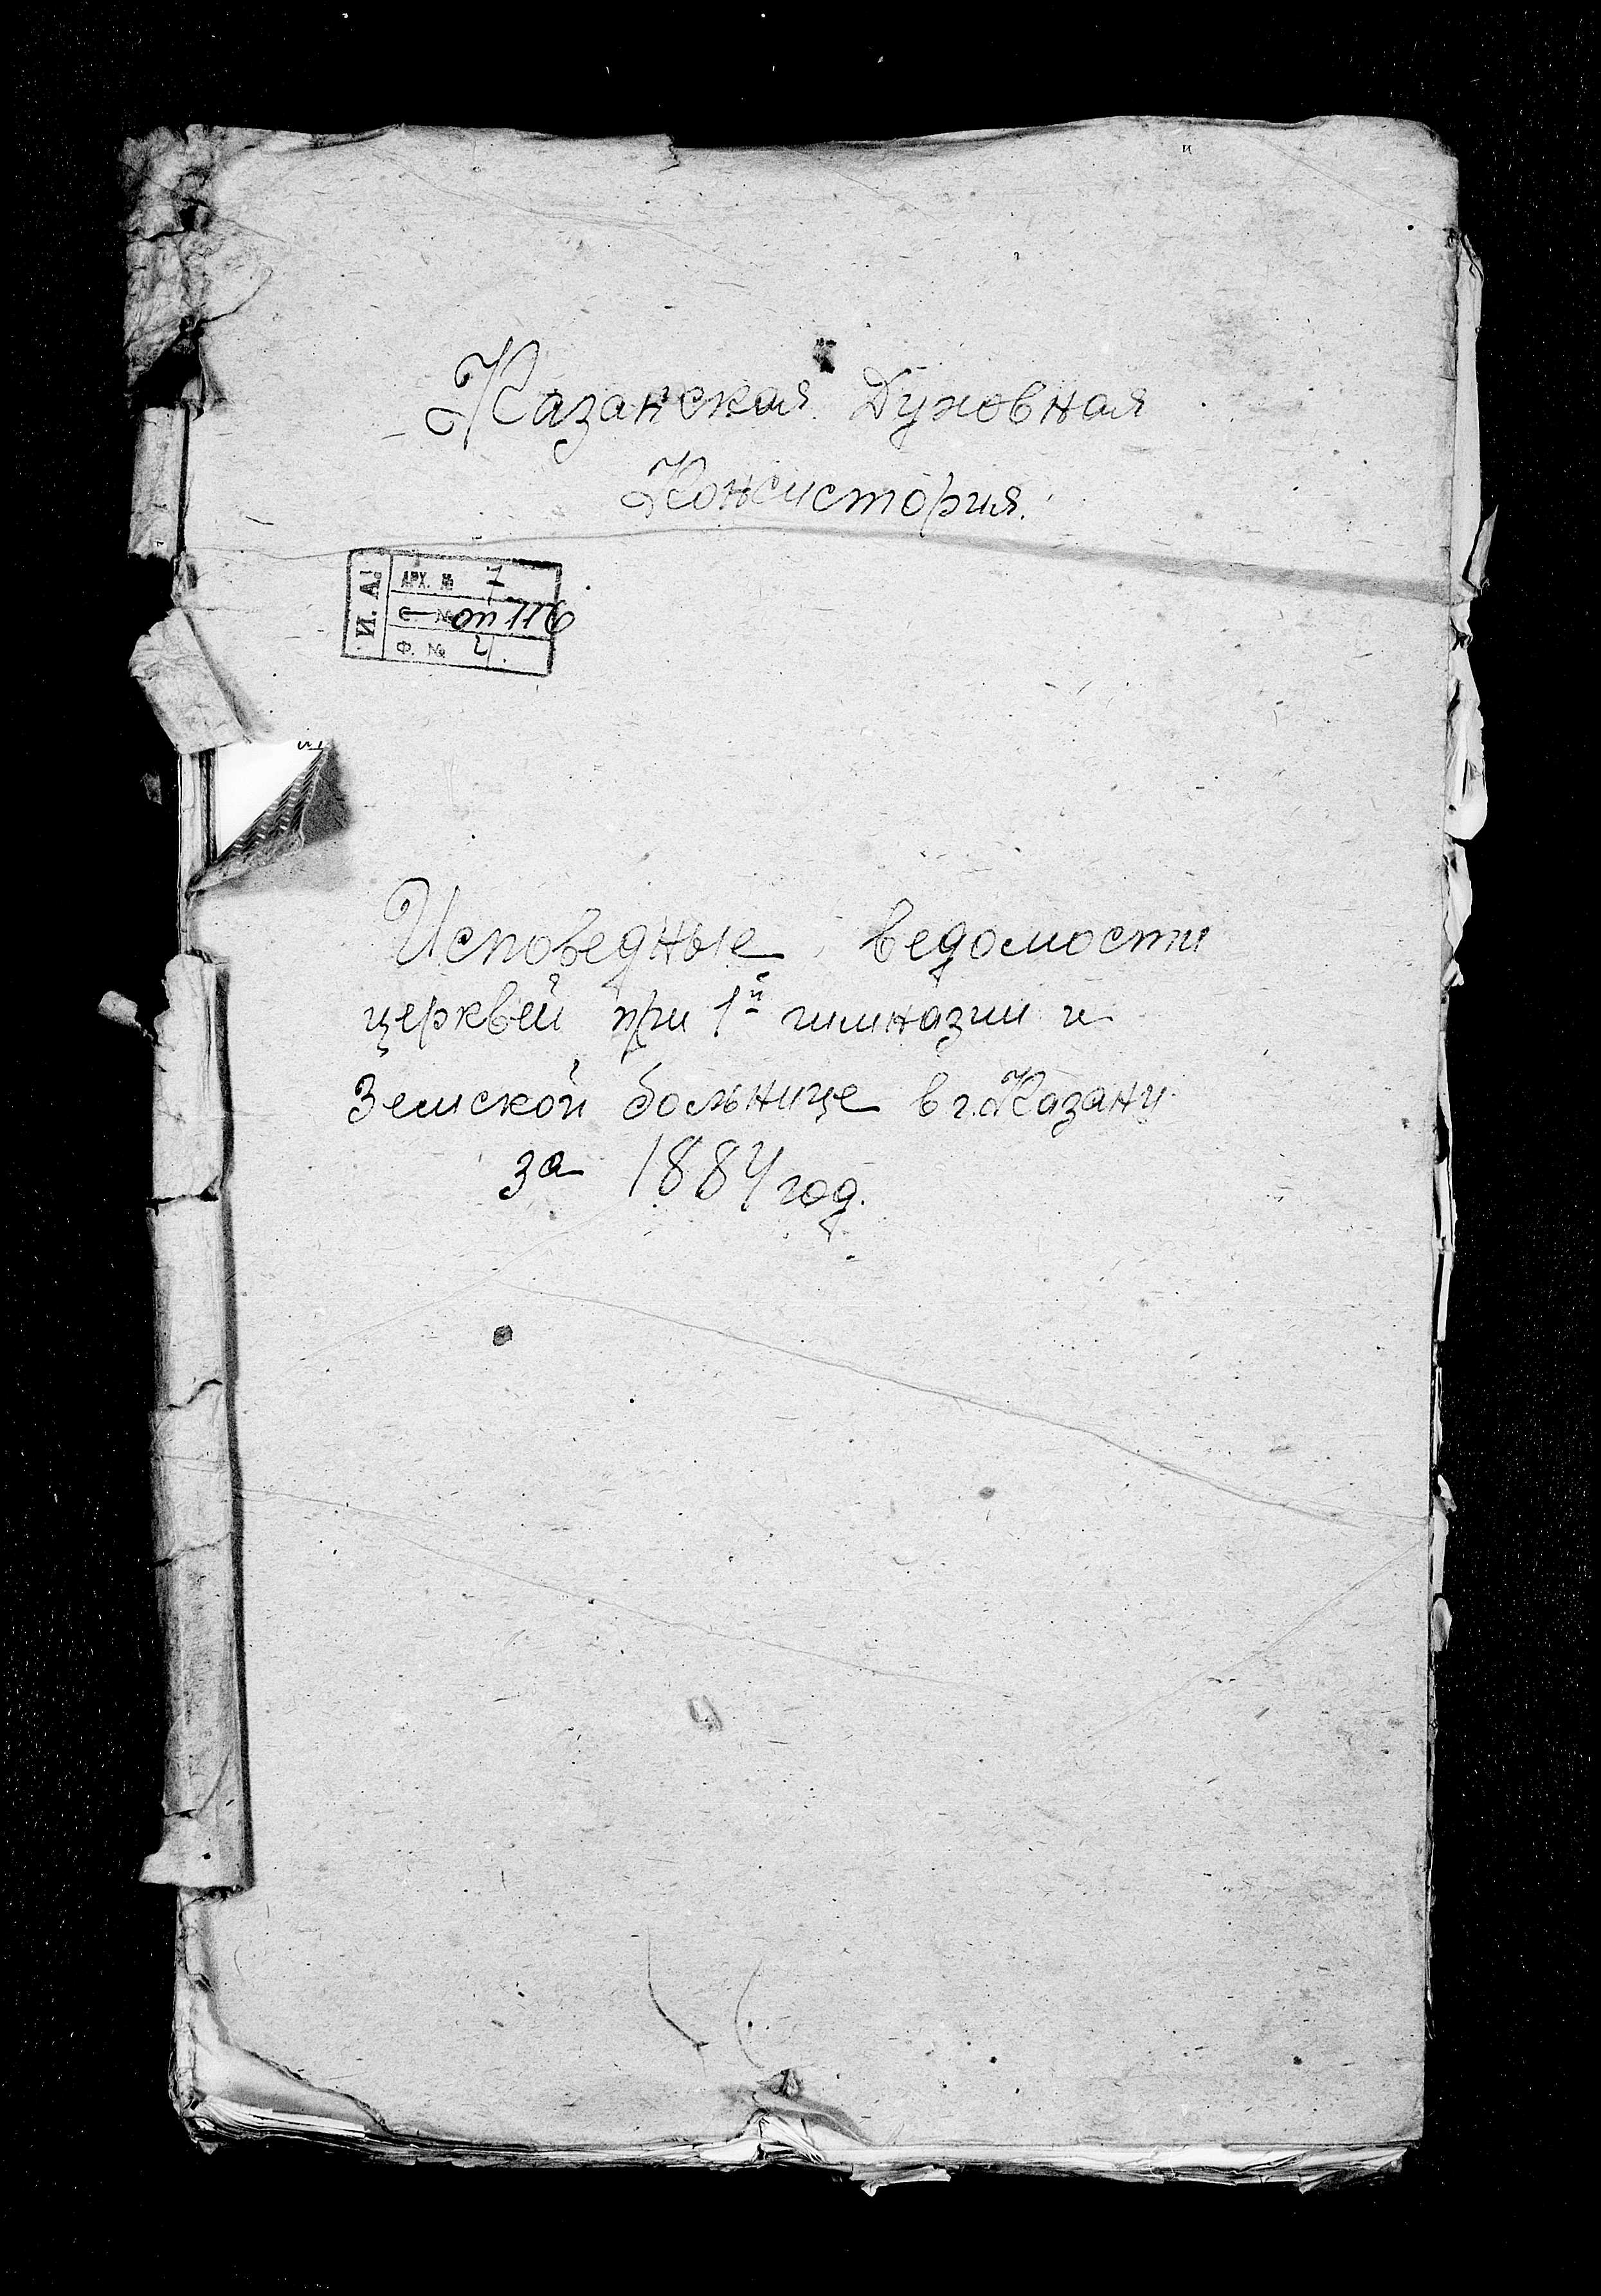 Казанская Духовная
Консистория.
И. А.
АРХ. № 7
оп 116
Ф. № 4.
Исповедные ведомости
церквей при 1й гимназии и
Земской больнице в г. Казани
за 1884 год.